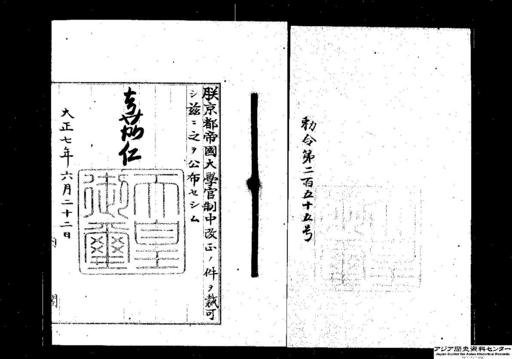 勅令第二百五十五号
朕京都帝國大學官制中改正ノ件ヲ裁可
シ茲ニ之ヲ公布セシム
嘉仁
天皇御璽
大正七年六月二十二日
内
アジア歴史資料センター
Japan Center for Asian Historical Records